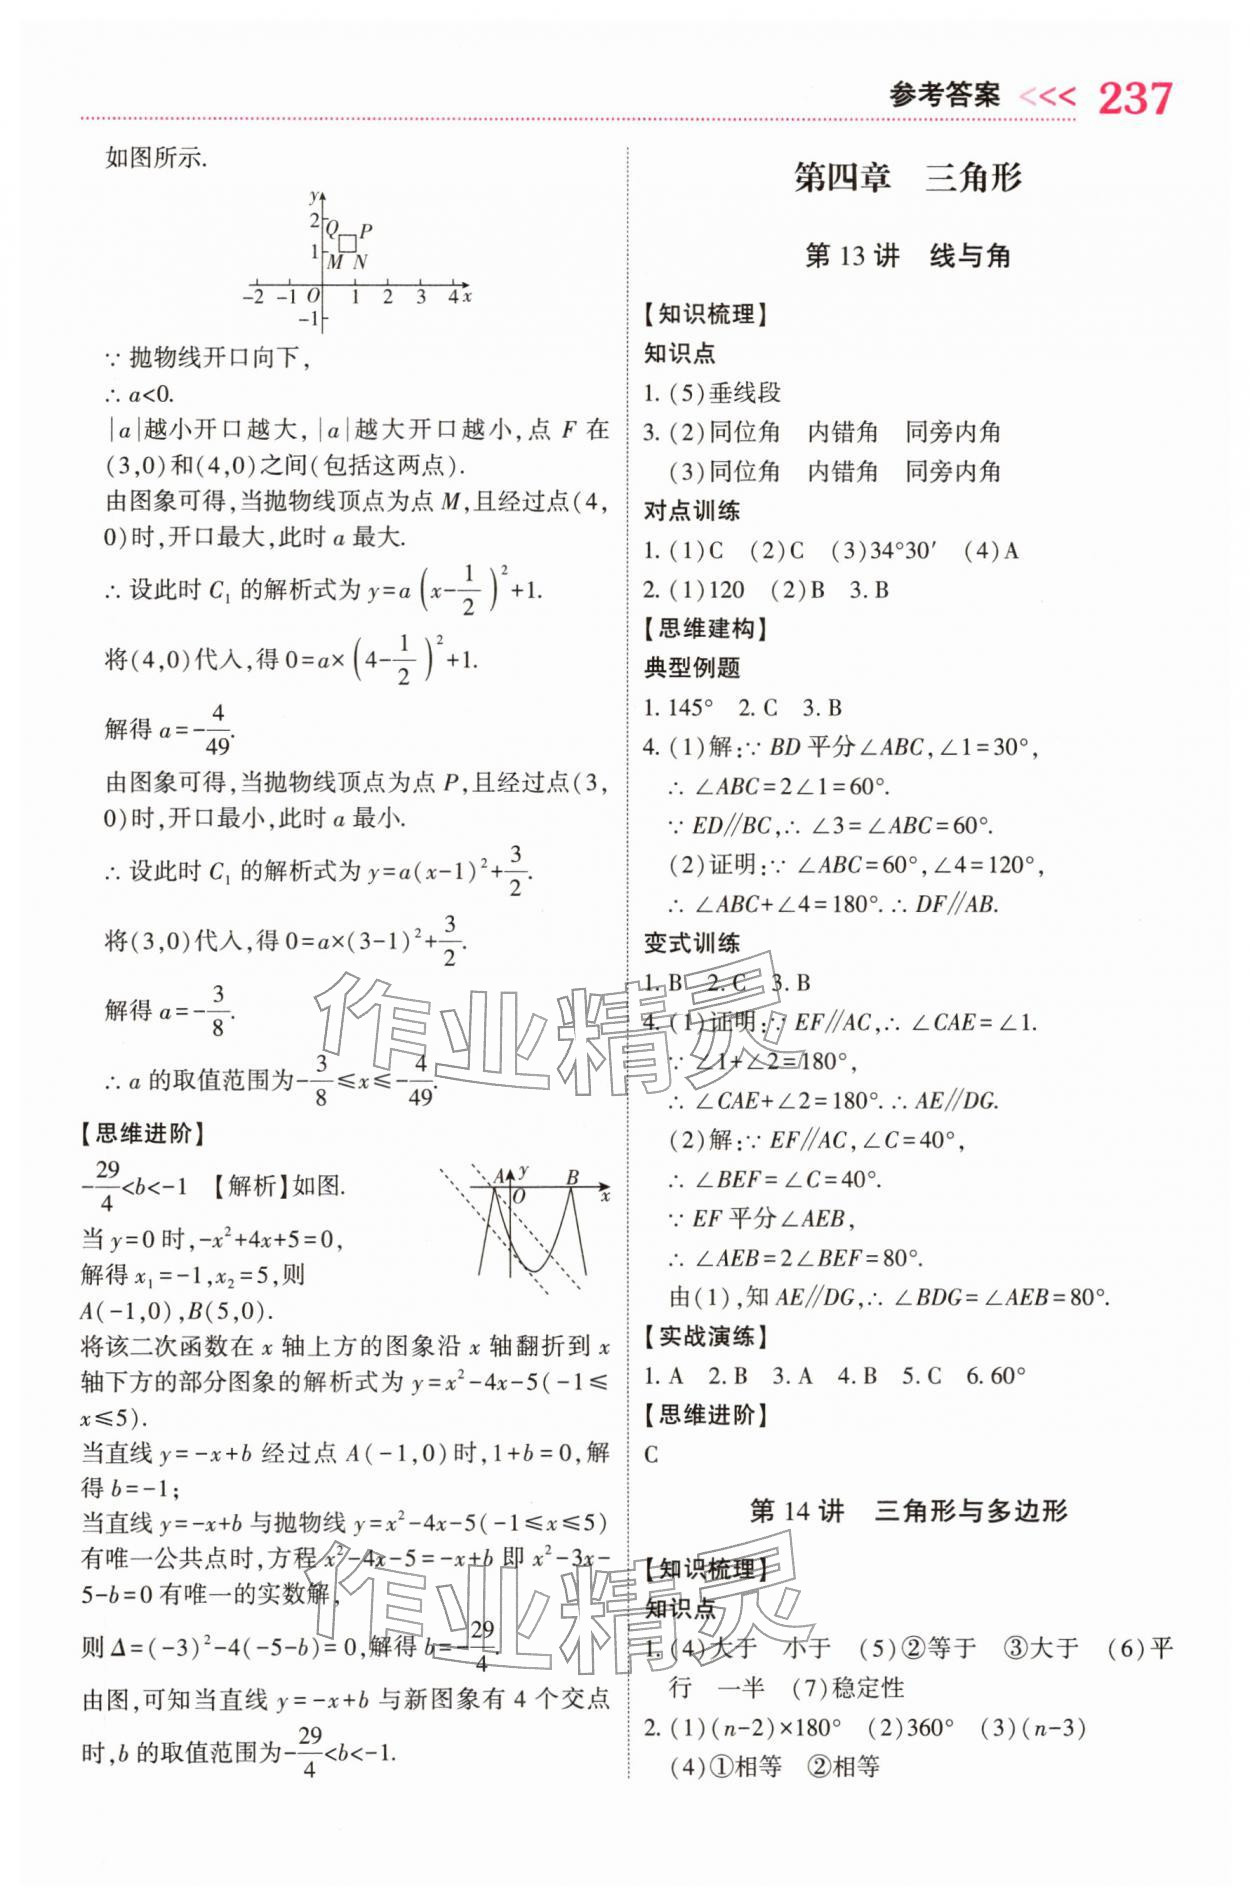 参考答案 <<< 237
如图所示.
y
2
Q P
1
M N
-2 -1 O 1 2 3 4 x
-1
∵ 抛物线开口向下,
∴ a<0.
|a|越小开口越大,|a|越大开口越小,点 F 在
(3,0)和(4,0)之间(包括这两点).
由图象可得,当抛物线顶点为点 M,且经过点(4,
0)时,开口最大,此时 a 最大.
∴ 设此时 C₁ 的解析式为 y=a(x-1/2)²+1.
将(4,0)代入,得 0=a×(4-1/2)²+1.
解得 a=-4/49.
由图象可得,当抛物线顶点为点 P,且经过点(3,
0)时,开口最小,此时 a 最小.
∴ 设此时 C₁ 的解析式为 y=a(x-1)²+3/2.
将(3,0)代入,得 0=a×(3-1)²+3/2.
解得 a=-3/8.
∴ a 的取值范围为-3/8≤x≤-4/49.
【思维进阶】
-29/4<b<-1 【解析】如图.
A y B
O x
当 y=0 时,-x²+4x+5=0,
解得 x₁=-1,x₂=5,则
A(-1,0),B(5,0).
将该二次函数在 x 轴上方的图象沿 x 轴翻折到 x
轴下方的部分图象的解析式为 y=x²-4x-5(-1≤
x≤5).
当直线 y=-x+b 经过点 A(-1,0)时,1+b=0,解
得 b=-1;
当直线 y=-x+b 与抛物线 y=x²-4x-5(-1≤x≤5)
有唯一公共点时,方程 x²-4x-5=-x+b 即 x²-3x-
5-b=0 有唯一的实数解,
则 Δ=(-3)²-4(-5-b)=0,解得 b=-29/4.
由图,可知当直线 y=-x+b 与新图象有 4 个交点
时,b 的取值范围为-29/4<b<-1.
第四章 三角形
第 13 讲 线与角
【知识梳理】
知识点
1. (5)垂线段
3. (2)同位角 内错角 同旁内角
(3)同位角 内错角 同旁内角
对点训练
1. (1)C (2)C (3)34°30′ (4)A
2. (1)120 (2)B 3. B
【思维建构】
典型例题
1. 145° 2. C 3. B
4. (1)解:∵ BD 平分∠ABC,∠1=30°,
∴ ∠ABC=2∠1=60°.
∵ ED∥BC,∴ ∠3=∠ABC=60°.
(2)证明:∵ ∠ABC=60°,∠4=120°,
∴ ∠ABC+∠4=180°.∴ DF∥AB.
变式训练
1. B 2. C 3. B
4. (1)证明:∵ EF∥AC,∴ ∠CAE=∠1.
∵ ∠1+∠2=180°,
∴ ∠CAE+∠2=180°.∴ AE∥DG.
(2)解:∵ EF∥AC,∠C=40°,
∴ ∠BEF=∠C=40°.
∵ EF 平分∠AEB,
∴ ∠AEB=2∠BEF=80°.
由(1),知 AE∥DG,∴ ∠BDG=∠AEB=80°.
【实战演练】
1. A 2. B 3. A 4. B 5. C 6. 60°
【思维进阶】
C
第 14 讲 三角形与多边形
【知识梳理】
知识点
1. (4)大于 小于 (5)②等于 ③大于 (6)平
行 一半 (7)稳定性
2. (1)(n-2)×180° (2)360° (3)(n-3)
(4)①相等 ②相等
作业精灵
作业精灵